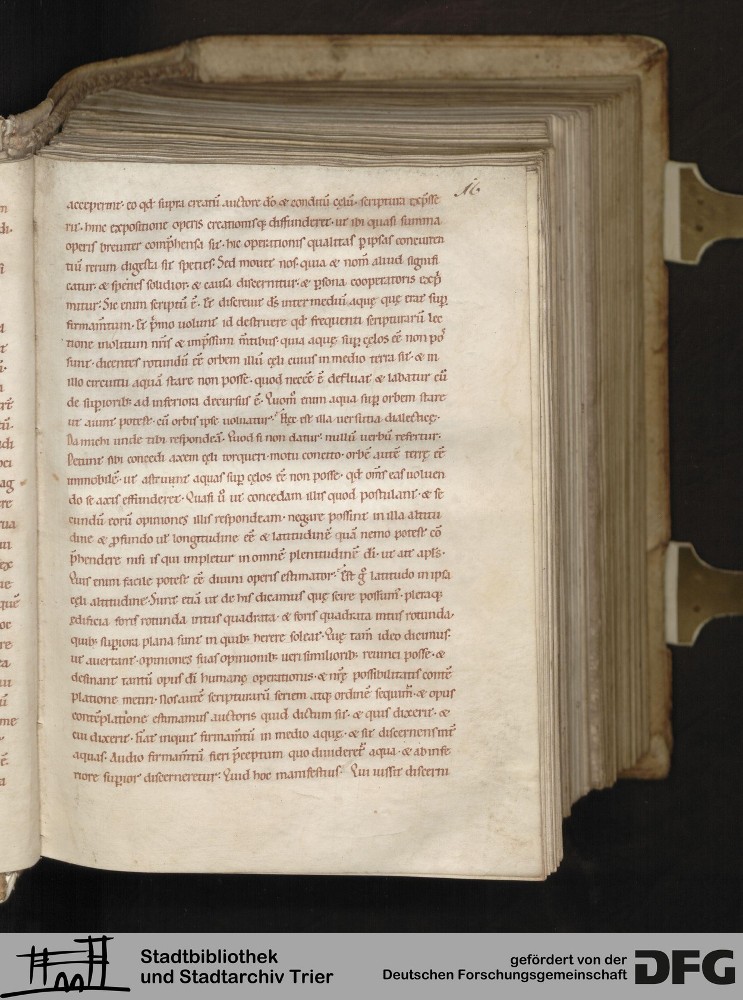 16.
acceperint. eo qd supra creatū auctore dō & conditū cęlū. scriptura exp̄sse
rit. hinc expositione operis creationisq; diffunderet. ut ibi quasi summa
operis breuiter comp̄hensa sit. hic operationis qualitas p ipsas conueni&#x303;
tiū rerum digesta sit species. Sed mouet nos. quia & nom̄ aliud signifi
catur. & species solidior. & causa discernitur. & p̱sona cooperatoris exp̄
mitur. Sic enim scriptū ē. Et discreuit ds̄ inter mediū aquę quę erat sup̱
firmam̄tum. Et p̄mo uolunt id destruere qd frequenti scripturarū lec
tione inolitum nr̄is & imp̄ssum m̄tibus. quia aquę sup̱ cęlos eē non pos̄
sunt. dicentes rotundū eē orbem illū cęli cuius in medio terra sit. & in
illo circuitu aquā stare non posse. quod necēē ē defluat & labatur cū
de sup̱iorib; ad inferiora decursus ē. Quom̄ enim aqua sup̱ orbem stare
ut aiunt potest. cū orbis ipse uoluatur. Hęc est illa uersutia dialecticę.
Da michi unde tibi respondeā. Quod si non datur. nullū uerbū refertur.
Petunt sibi concedi axem cęli torqueri motu concito. orbē autē terrę eē
immobilē. ut astruant aquas sup̱ cęlos eē non posse. qd om̄s eas uoluen
do se axis effunderet. Quasi ů ut concedam illis quod postulant. & se
cundū eorū opiniones illis respondeam. negare possint in illa altitu
dine & p̱fundo ut longitudine eē & latitudinē quā nemo potest cō
p̄hendere nisi is qui impletur in omnē plenitudinē dī. ut ait apl̄s.
Quis enim facile potest eē diuini operis estimator. Est g° latitudo in ipsa
cęli altitudine. Sunt etiā ut de his dicamus quę scire possum'. pleraq;
ędificia foris rotunda intus quadrata. & foris quadrata intus rotunda.
quib; sup̱iora plana sunt in quib; herere soleat. Quę tam̄ ideo dicimus.
ut auertant opiniones suas opinionib; uerisimilioribus reuinci posse. &
desinant tantū opus dī humanę operationis. & nr̄ę possibilitatis conte&#x303;
platione metiri. Nos autē scripturarū seriem atq; ordinē sequim'. & opus
contēplatione estimamus auctoris quid dictum sit. & quis dixerit. &
cui dixerit. Fiat inquit firmam̄tū in medio aquę. & sit discernens int̄
aquas. Audio firmam̄tū fieri p̄ceptum quo diuideret' aqua. & ab infe
riore sup̱ior discerneretur. Quid hoc manifestius. Qui iussit discerni
Stadtbibliothek
und Stadtarchiv Trier
gefördert von der
Deutschen Forschungsgemeinschaft
DFG